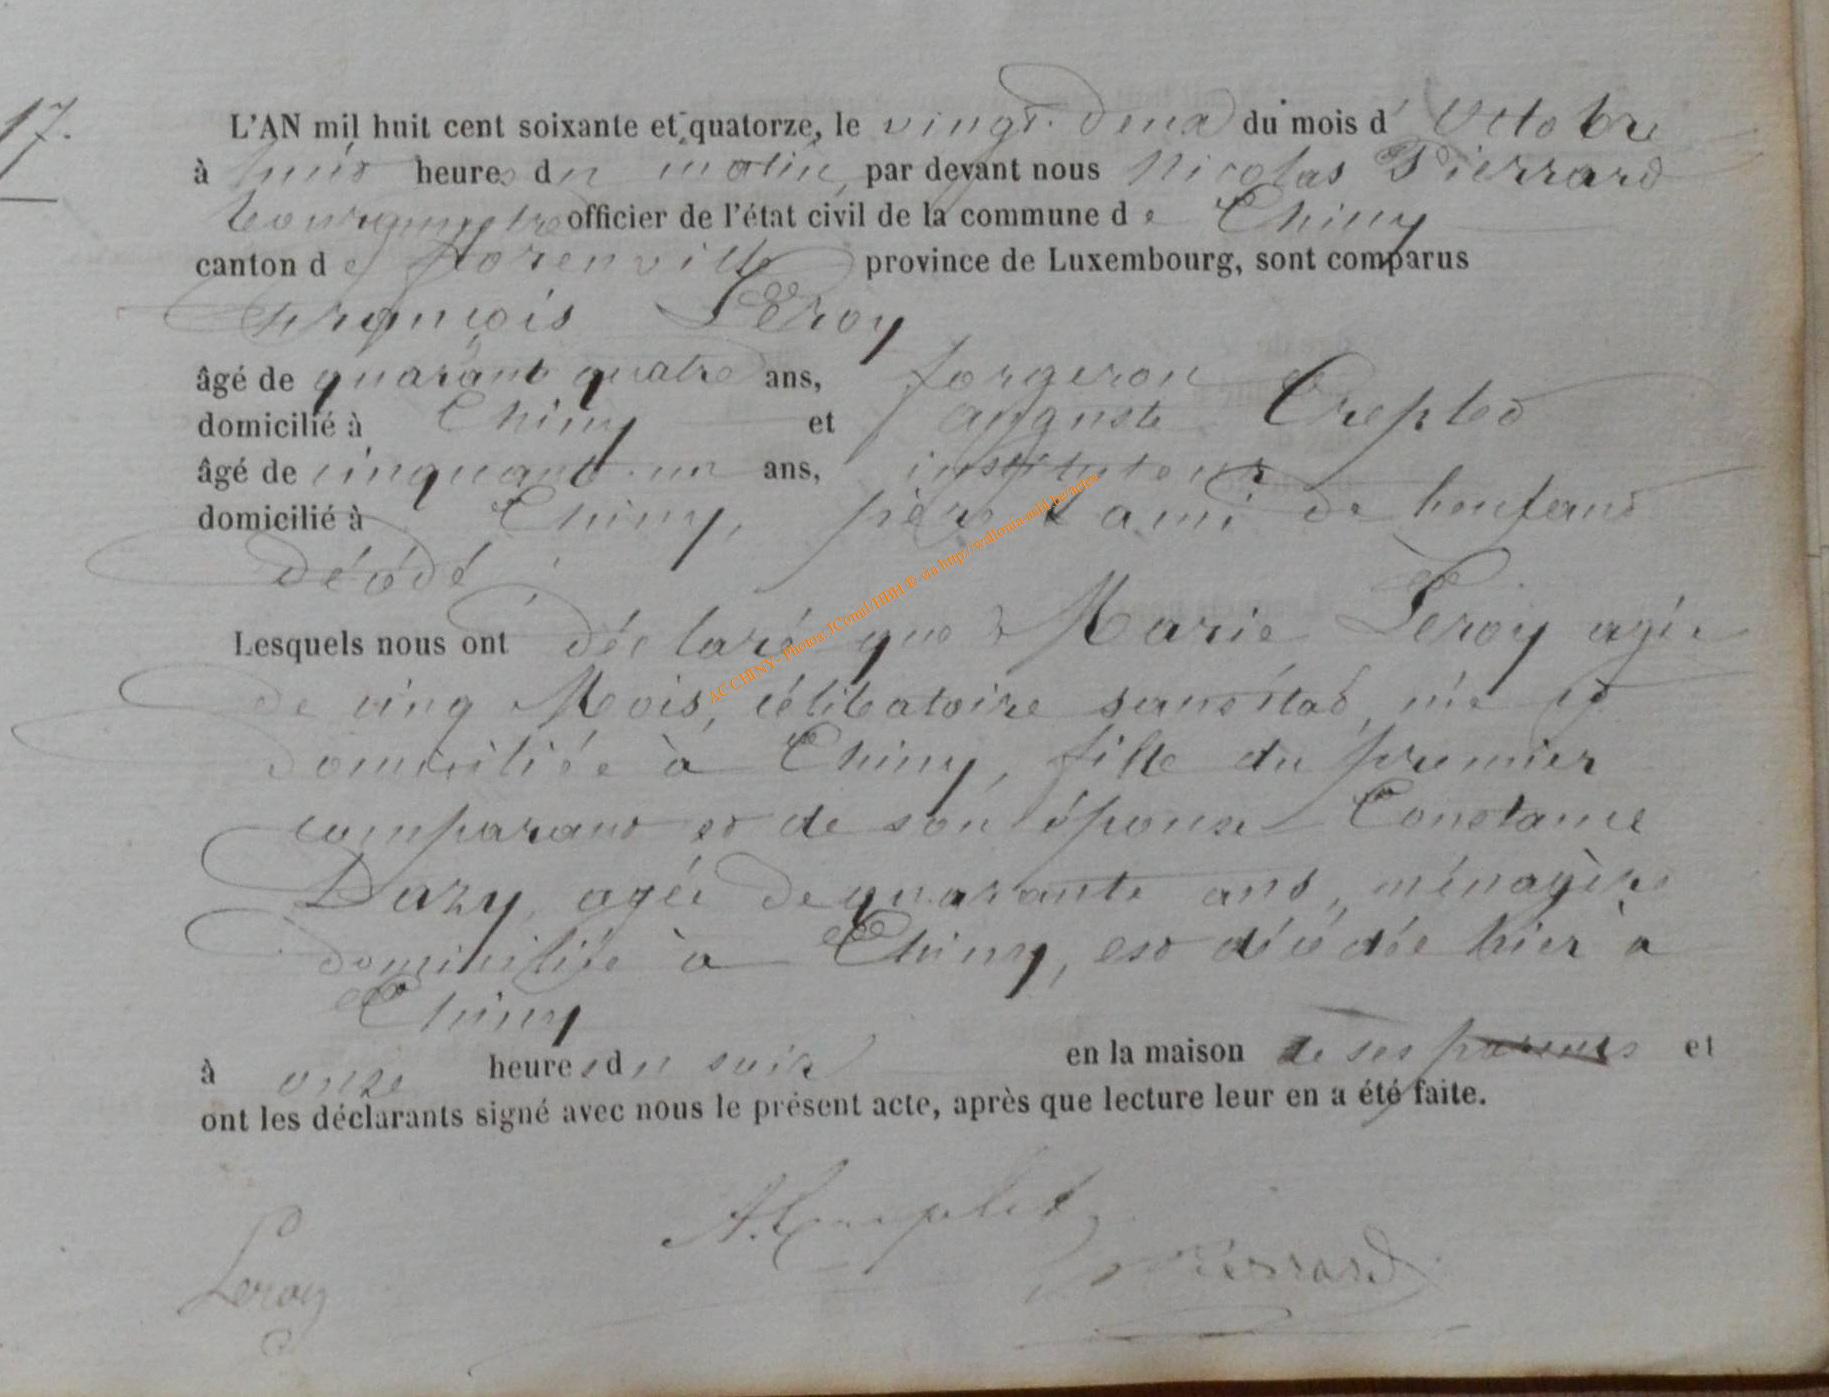 17.
L'AN mil huit cent soixante et quatorze, le vingt-deux du mois d'Octobre
à huit heures du matin, par devant nous Nicolas Pierrard
bourgmestre officier de l'état civil de la commune de Chiny
canton de florenville province de Luxembourg, sont comparus
François Leroy
âgé de quarante quatre ans, forgeron
domicilié à Chiny et auguste Crepled
âgé de cinquante un ans, instituteur
domicilié à Chiny, père & ami de l'enfant
décédé
Lesquels nous ont déclaré que Marie Leroy agée
de cinq Mois, célibataire sans état, née et
domiciliée à Chiny, fille du premier
comparant et de son épouse Constance
Dazy, agée de quarante ans, ménagère
domiciliée à Chiny, est décédée hier à
Chiny
à onze heures du soir en la maison de ses parents et
ont les déclarants signé avec nous le présent acte, après que lecture leur en a été faite.
Leroy
Pierrard
ACCHINY- Photos JComil/HBH ® via http://wallonia-mjd.be/actes